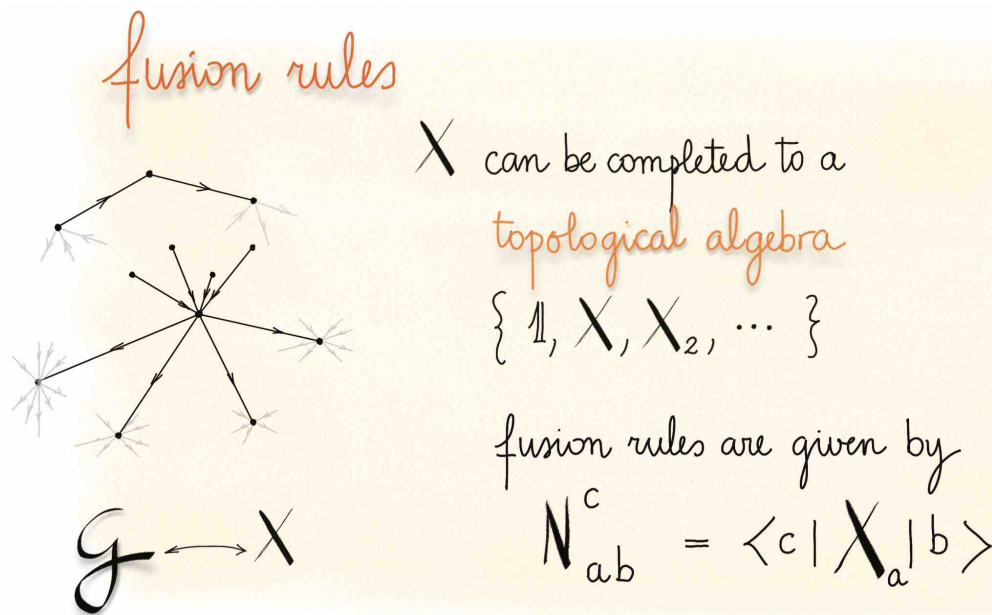 fusion rules
X can be completed to a
topological algebra
{ 𝟙, X, X₂, ⋯ }
fusion rules are given by
N_{ab}^{c} = ⟨c| X_a |b⟩
G ↔ X